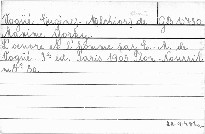 Vogüé Eugène-Melchior de
Maxime Gorky.
L'oeuvre et l'homme par E. M. de
Vogüé. 3e ed. Paris 1905 Plon-Nourrit
in 8° 50.